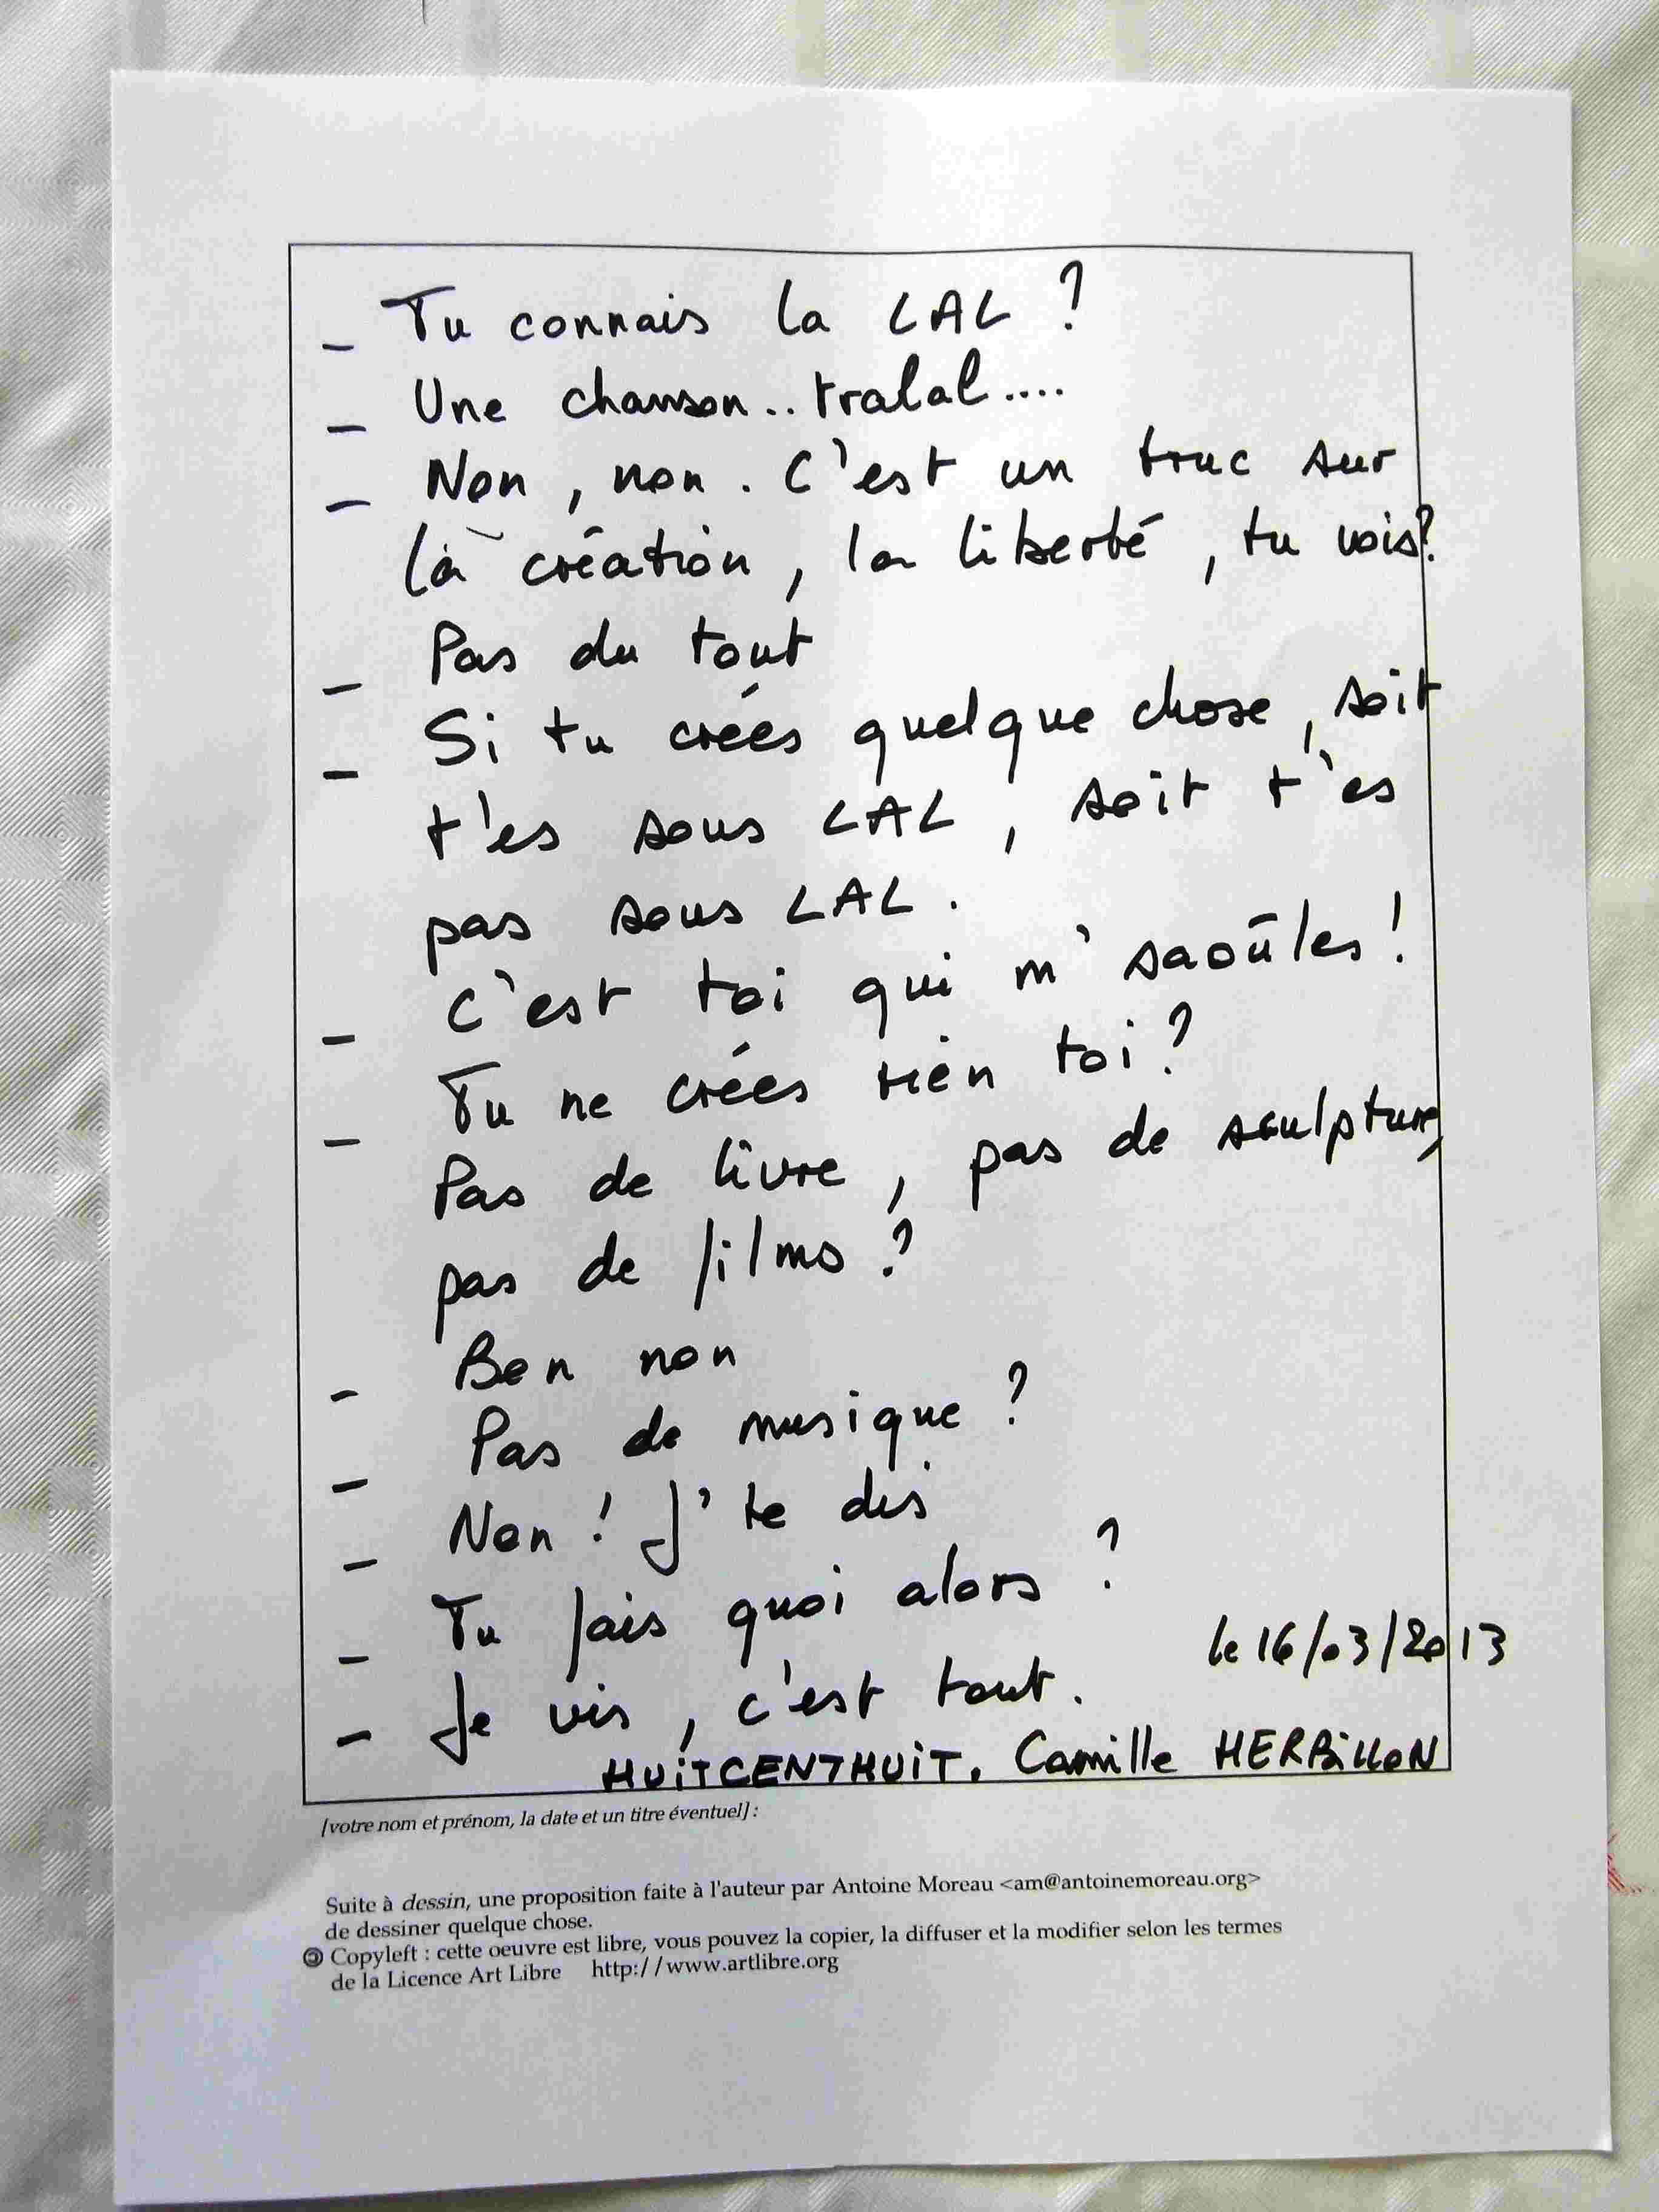 _ Tu connais la LAL ?
_ Une chanson.. tralal....
_ Non, non. C'est un truc sur
la création, la liberté, tu vois?
_ Pas du tout
_ Si tu crées quelque chose, soit
t'es sous LAL, soit t'es
pas sous LAL.
_ C'est toi qui m'saoûles !
_ Tu ne crées rien toi ?
Pas de livre, pas de sculpture,
pas de films ?
_ Ben non
_ Pas de musique ?
_ Non ! J'te dis
_ Tu fais quoi alors ?
le 16/03/2013
_ Je vis, c'est tout.
HUiTCENTHUiT. Camille HERBiLLON
[votre nom et prénom, la date et un titre éventuel] :
Suite à dessin, une proposition faite à l'auteur par Antoine Moreau <am@antoinemoreau.org>
de dessiner quelque chose.
Copyleft : cette oeuvre est libre, vous pouvez la copier, la diffuser et la modifier selon les termes
de la Licence Art Libre http://www.artlibre.org